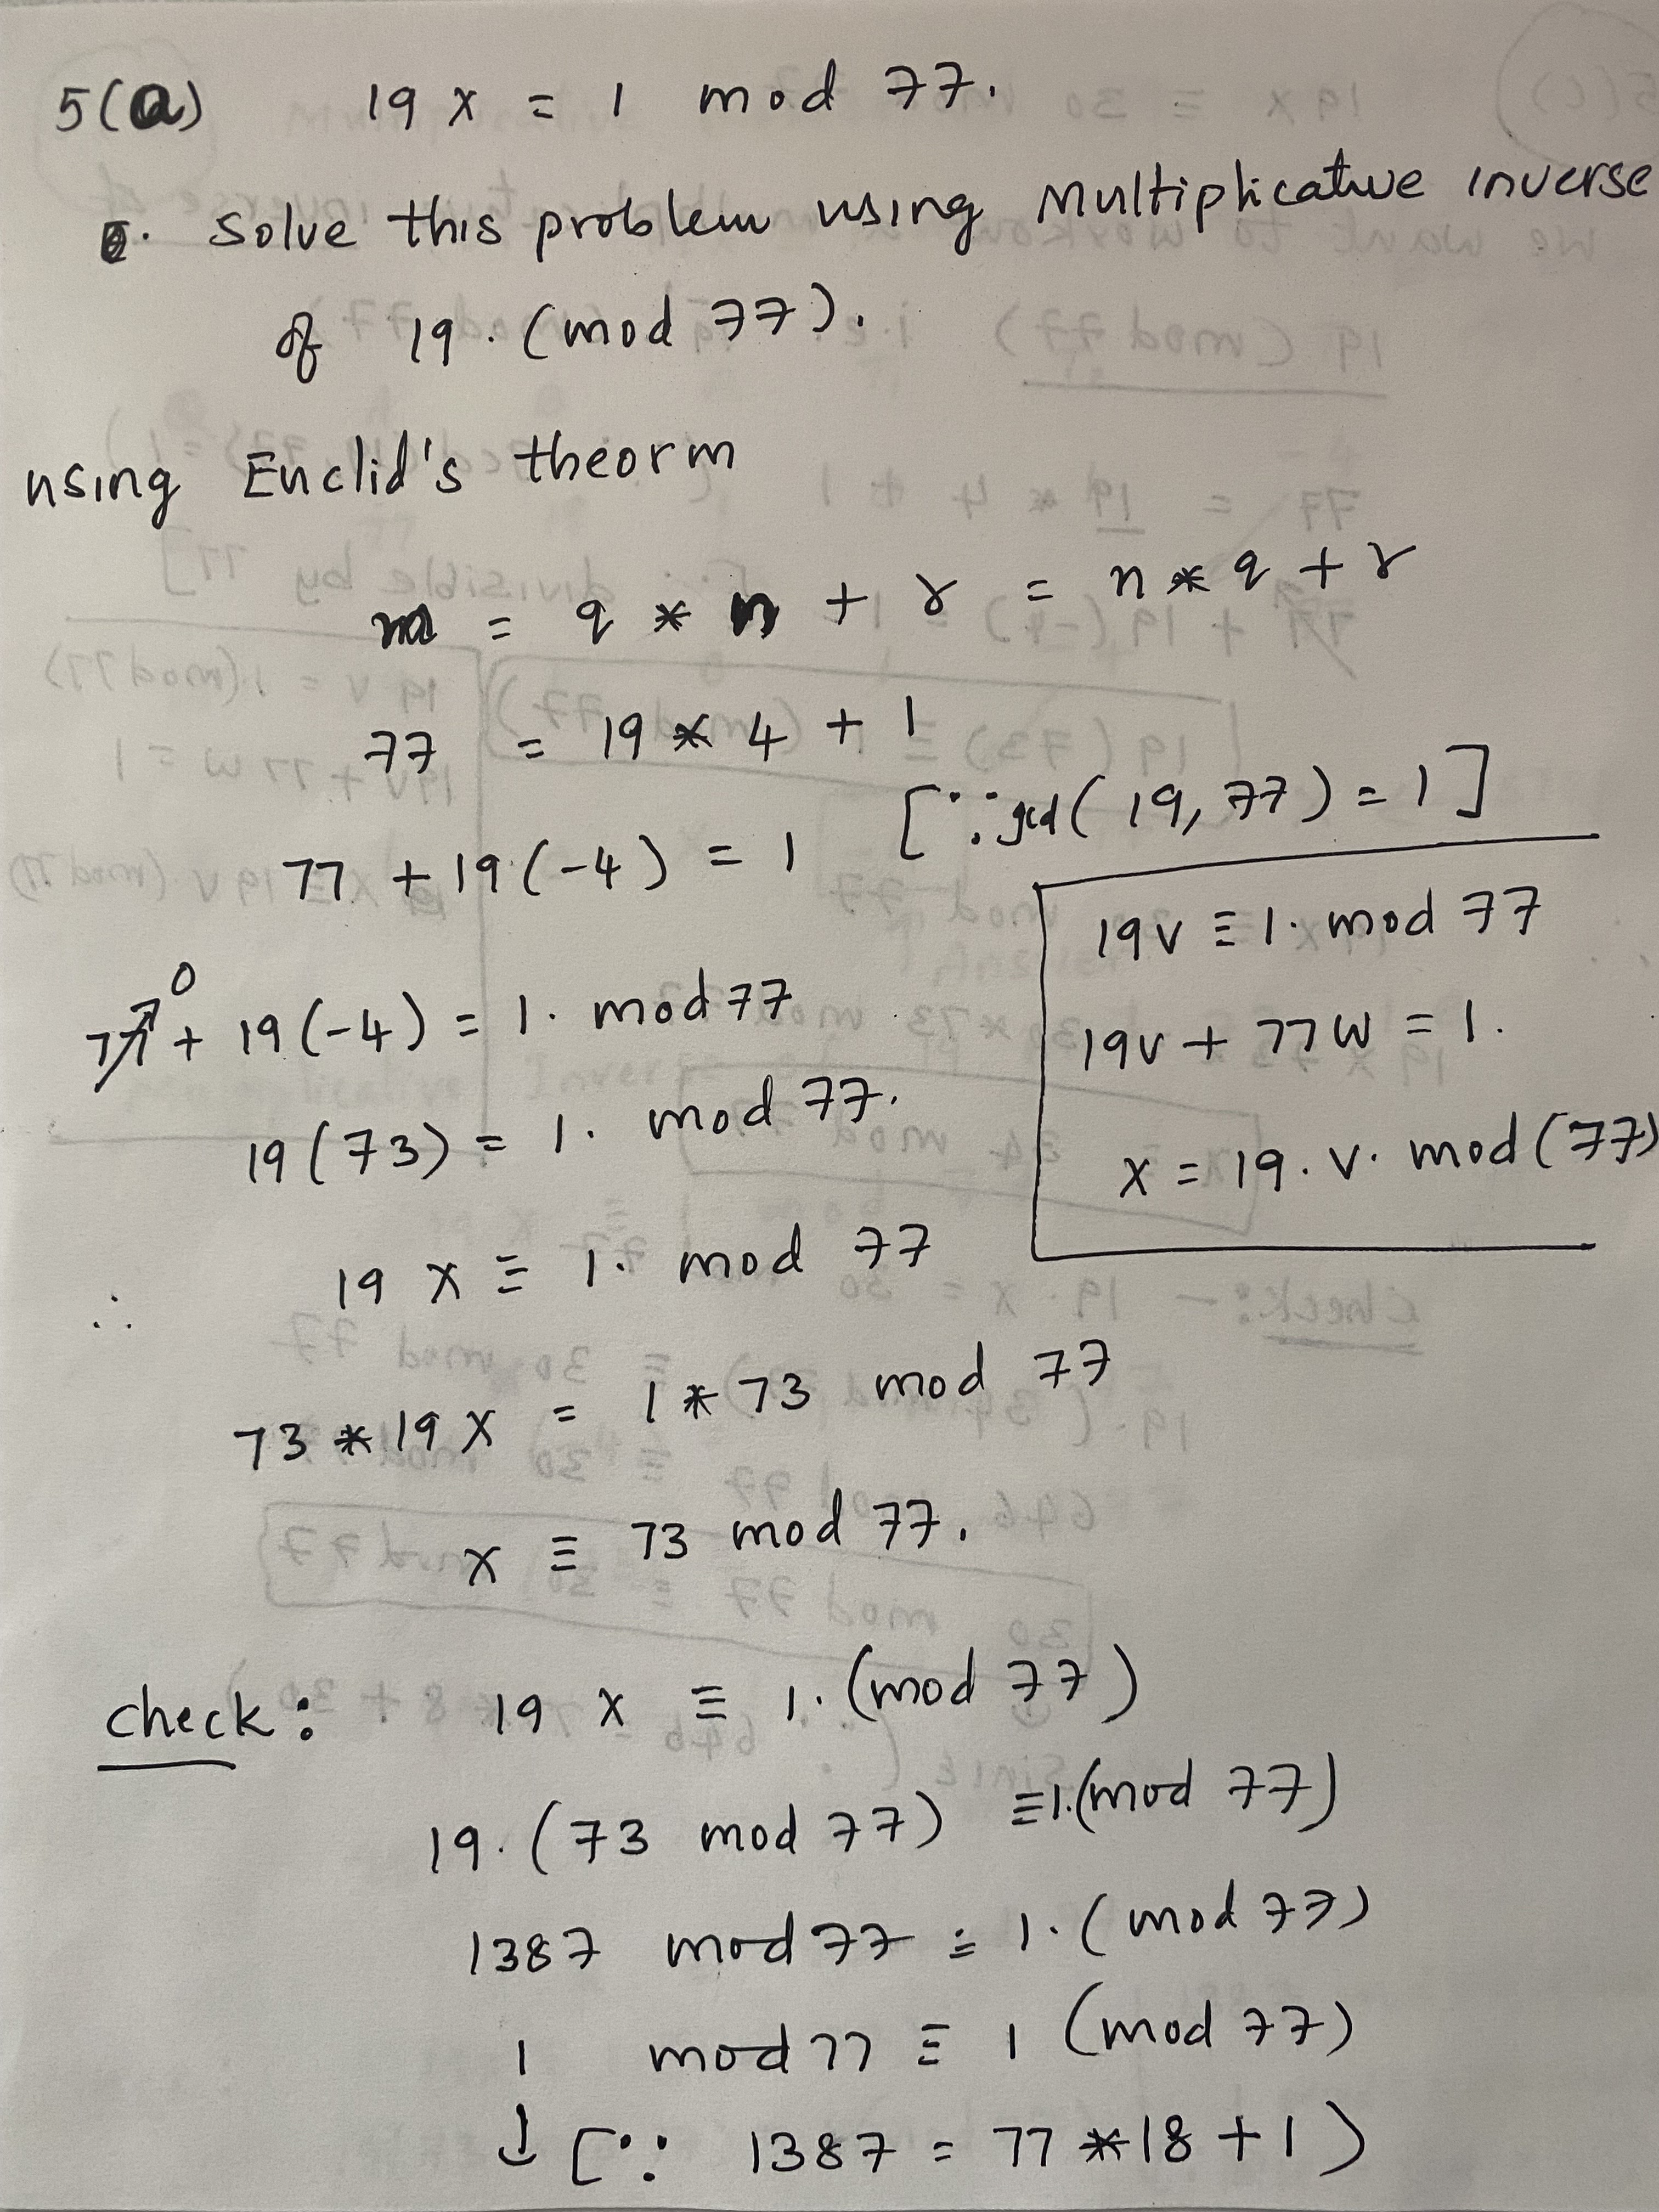 5(a) 19 x = 1 mod 77.
solve this problem using Multiplicative inverse
of 19. (mod 77).
using Euclid's theorm
m = q * n + r = n * q + r
77 = 19 * 4 + 1
77 + 19(-4) = 1 [∵ gcd(19, 77) = 1]
19v ≡ 1. mod 77
19v + 77w = 1.
x = 19. v. mod (77)
77 0 + 19(-4) = 1. mod 77
19(73) = 1. mod 77.
∴ 19 x ≡ 1. mod 77
73 * 19 x = 1 * 73 mod 77
x ≡ 73 mod 77.
check: 19 x ≡ 1. (mod 77)
19. (73 mod 77) ≡ 1. (mod 77)
1387 mod 77 ≡ 1. (mod 77)
1 mod 77 ≡ 1 (mod 77)
↓ [∵ 1387 = 77 * 18 + 1)